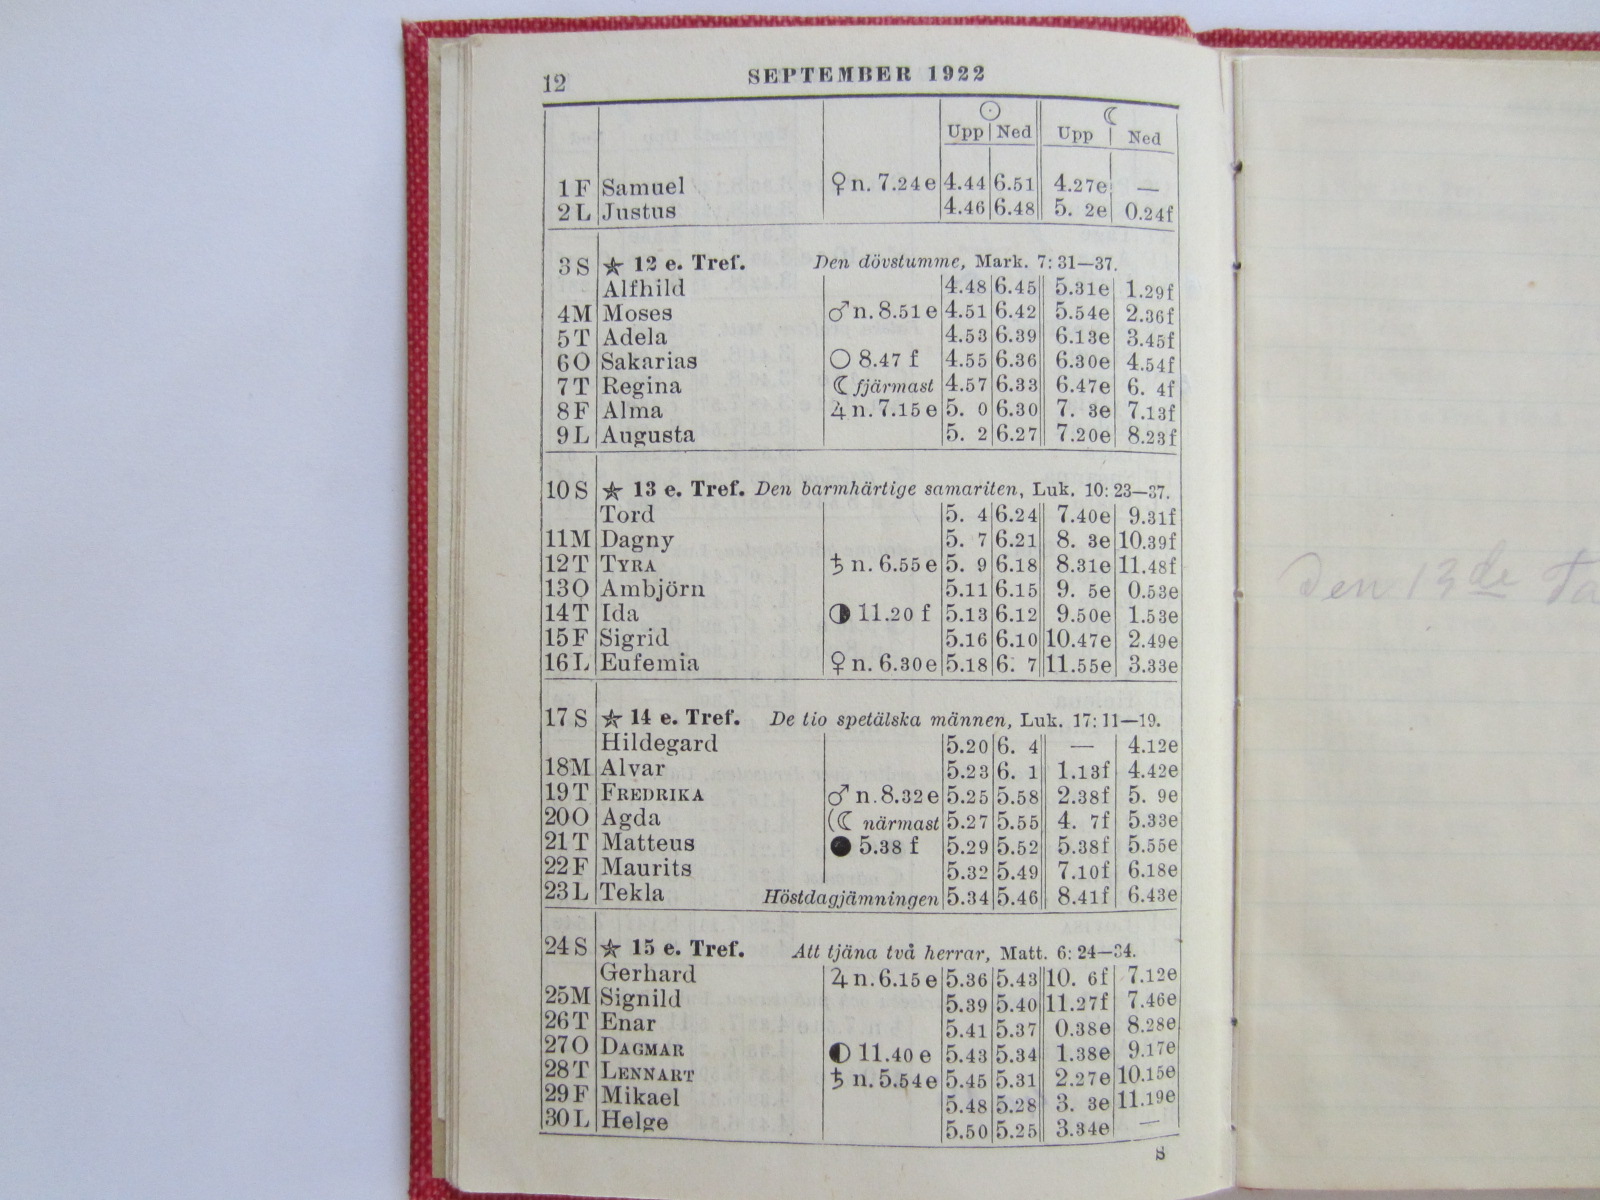 12 SEPTEMBER 1922
☉ ☾
Upp Ned Upp Ned
1 F Samuel ♀ n. 7.24 e 4.44 6.51 4.27e —
2 L Justus 4.46 6.48 5. 2e 0.24f
3 S ★ 12 e. Tref. Den dövstumme, Mark. 7: 31—37.
Alfhild 4.48 6.45 5.31e 1.29f
4 M Moses ♂ n. 8.51 e 4.51 6.42 5.54e 2.36f
5 T Adela 4.53 6.39 6.13e 3.45f
6 O Sakarias ○ 8.47 f 4.55 6.36 6.30e 4.54f
7 T Regina ☾ fjärmast 4.57 6.33 6.47e 6. 4f
8 F Alma ♃ n. 7.15 e 5. 0 6.30 7. 3e 7.13f
9 L Augusta 5. 2 6.27 7.20e 8.23f
10 S ★ 13 e. Tref. Den barmhärtige samariten, Luk. 10: 23—37.
Tord 5. 4 6.24 7.40e 9.31f
11 M Dagny 5. 7 6.21 8. 3e 10.39f
12 T TYRA ♄ n. 6.55 e 5. 9 6.18 8.31e 11.48f
13 O Ambjörn 5.11 6.15 9. 5e 0.53e
14 T Ida ◑ 11.20 f 5.13 6.12 9.50e 1.53e
15 F Sigrid 5.16 6.10 10.47e 2.49e
16 L Eufemia ♀ n. 6.30 e 5.18 6. 7 11.55e 3.33e
17 S ★ 14 e. Tref. De tio spetälska männen, Luk. 17: 11—19.
Hildegard 5.20 6. 4 — 4.12e
18 M Alvar 5.23 6. 1 1.13f 4.42e
19 T FREDRIKA ♂ n. 8.32 e 5.25 5.58 2.38f 5. 9e
20 O Agda (☾ närmast 5.27 5.55 4. 7f 5.33e
21 T Matteus ● 5.38 f 5.29 5.52 5.38f 5.55e
22 F Maurits 5.32 5.49 7.10f 6.18e
23 L Tekla Höstdagjämningen 5.34 5.46 8.41f 6.43e
24 S ★ 15 e. Tref. Att tjäna två herrar, Matt. 6: 24—34.
Gerhard ♃ n. 6.15 e 5.36 5.43 10. 6f 7.12e
25 M Signild 5.39 5.40 11.27f 7.46e
26 T Enar 5.41 5.37 0.38e 8.28e
27 O DAGMAR ◐ 11.40 e 5.43 5.34 1.38e 9.17e
28 T LENNART ♄ n. 5.54 e 5.45 5.31 2.27e 10.15e
29 F Mikael 5.48 5.28 3. 3e 11.19e
30 L Helge 5.50 5.25 3.34e —
S
den 13de